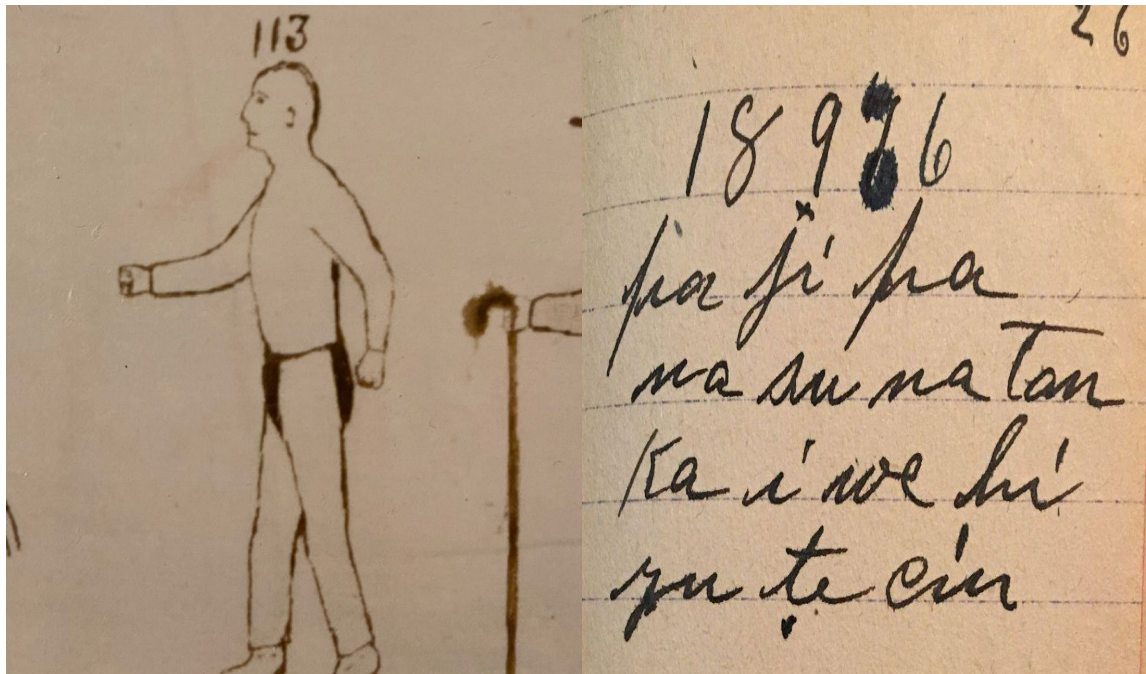 113
26
1896
pa ji pa
na su na tan
ka i we hi
yu te cin